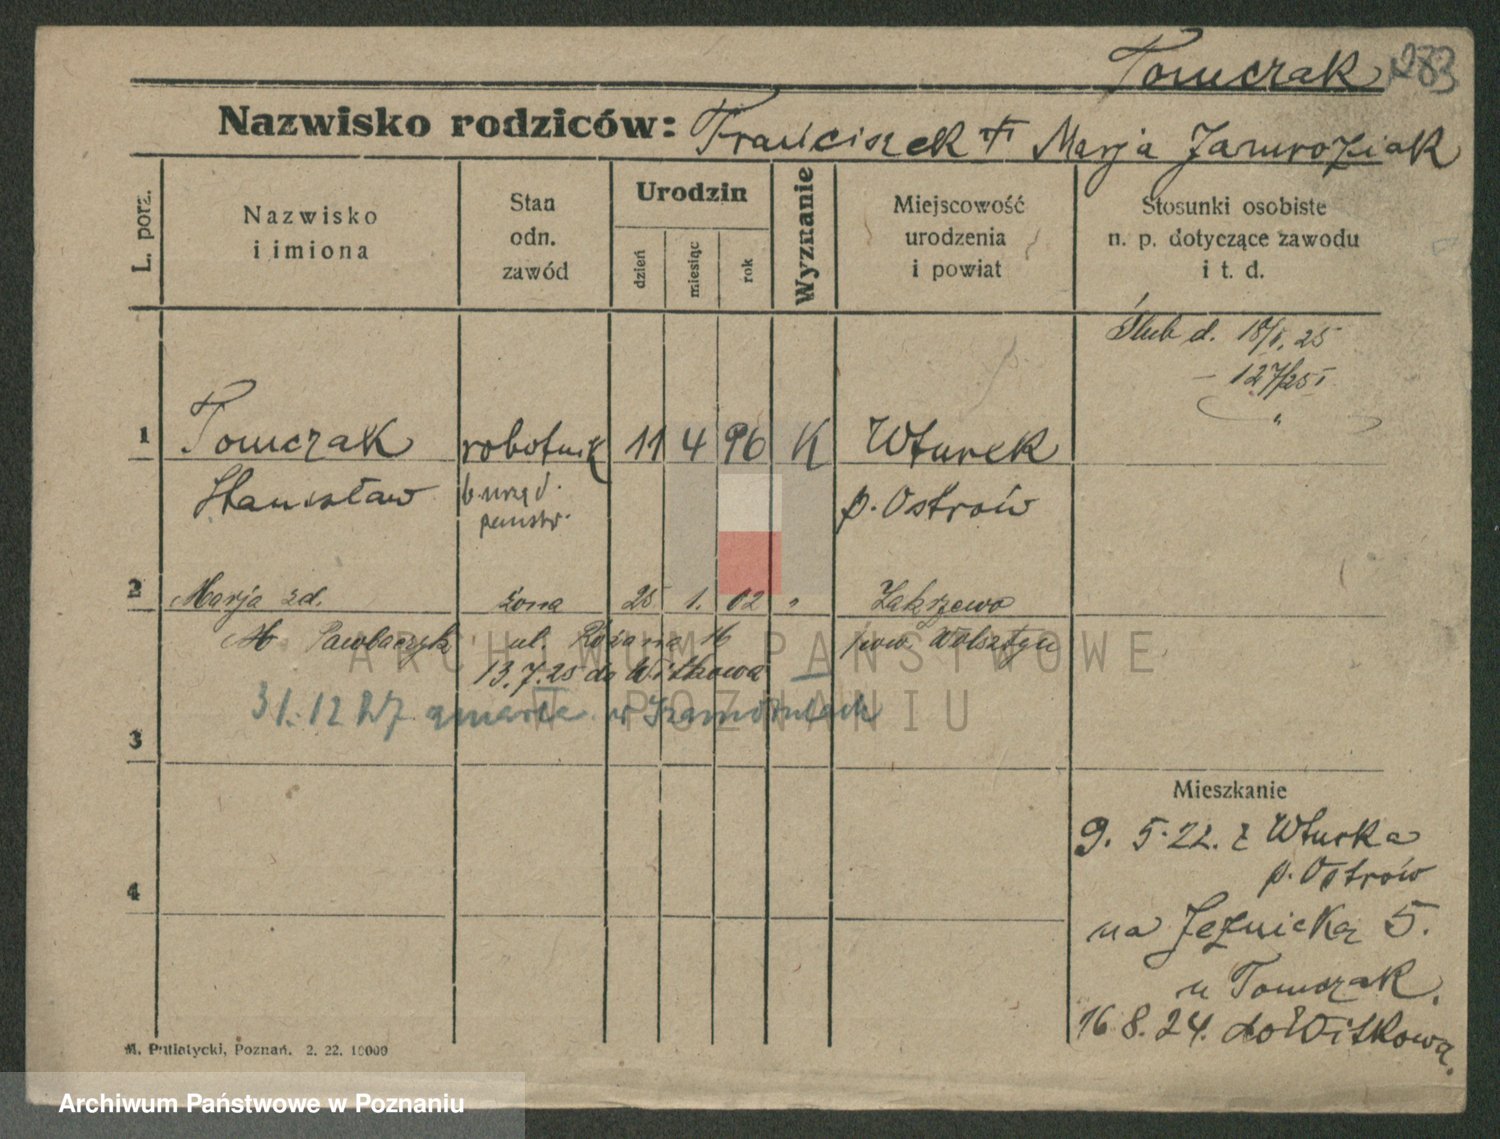 Tomczak 283
Nazwisko rodziców: Franciszek Marja Jamroziak
L. porz.
Nazwisko
i imiona
Stan
odn.
zawód
Urodzin
dzień
miesiąc
rok
Wyznanie
Miejscowość
urodzenia
i powiat
Stosunki osobiste
n. p. dotyczące zawodu
i t. d.
Ślub d. 18/I. 25
127/25 I
1 Tomczak robotnik 11 4 96 K Wturek
Stanisław b. urzęd. p. Ostrów
państw.
2 Marja zd. żona 25 1. 02 " Zakrzewo
Pawlaczyk ul. Różana 16 pow. Wolsztyn
13.7.25 do Witkowa
31.12 27 zmarła w Szamotułach
3
4
Mieszkanie
9. 5. 22. z Wturka
p. Ostrów
na Jeżnicką 5.
u Tomczak.
16 8. 24. do Witkowa.
M. Putiatycki, Poznań. 2. 22. 10000
ARCHIWUM PAŃSTWOWE
W POZNANIU
Archiwum Państwowe w Poznaniu